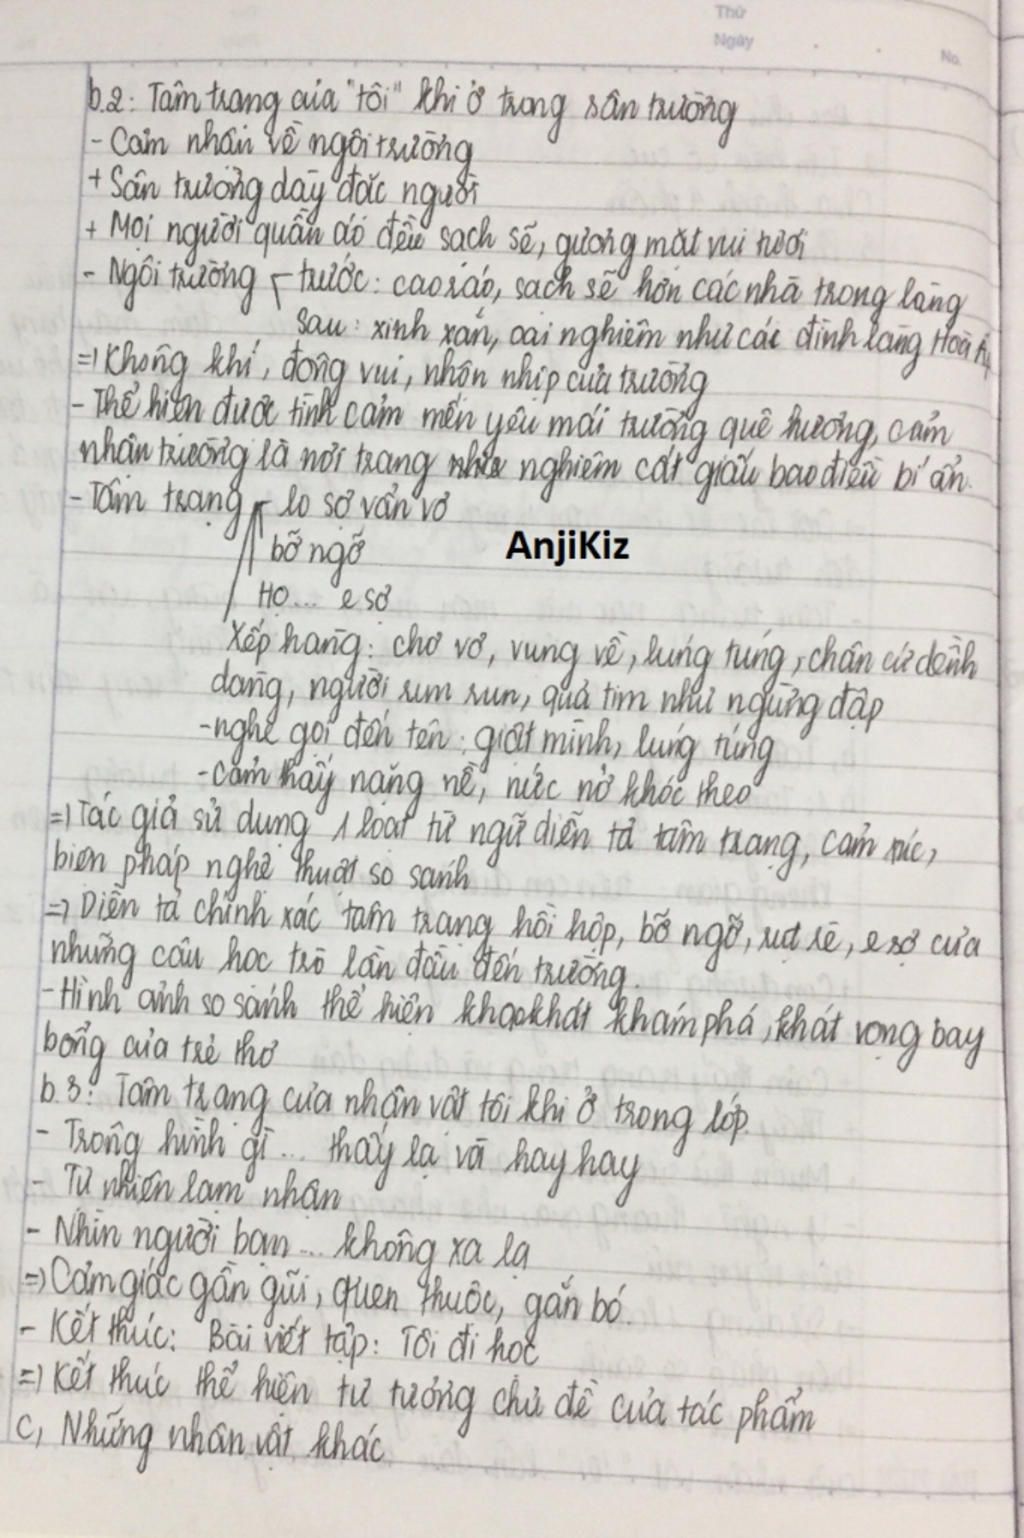 Thứ
Ngày
No.
b.2: Tâm trạng của "tôi" khi ở trong sân trường
- Cảm nhận về ngôi trường
+ Sân trường dày đặc người
+ Mọi người quần áo đều sạch sẽ, gương mặt vui tươi
- Ngôi trường trước: cao ráo, sạch sẽ hơn các nhà trong làng
sau: xinh xắn, oai nghiêm như cái đình làng Hoà Ấp
=> Không khí, đông vui, nhộn nhịp của trường
- Thể hiện được tình cảm mến yêu mái trường quê hương, cảm
nhận trường là nơi trang nghiêm cất giấu bao điều bí ẩn.
- Tâm trạng lo sợ vẩn vơ
bỡ ngỡ
AnjiKiz
Họ... e sợ
Xếp hàng: chơ vơ, vụng về, lúng túng, chân cứ dềnh
dàng, người run run, quả tim như ngừng đập
- nghe gọi đến tên: giật mình, lúng túng
- cảm thấy nặng nề, nức nở khóc theo
=> Tác giả sử dụng 1 loạt từ ngữ diễn tả tâm trạng, cảm xúc,
biện pháp nghệ thuật so sánh
=> Diễn tả chính xác tâm trạng hồi hộp, bỡ ngỡ, rụt rè, e sợ của
những cậu học trò lần đầu đến trường.
- Hình ảnh so sánh thể hiện khao khát khám phá, khát vọng bay
bổng của trẻ thơ
b.3: Tâm trạng của nhân vật tôi khi ở trong lớp.
- Trông hình gì... thấy lạ và hay hay
- Tự nhiên lạm nhận
- Nhìn người bạn... không xa lạ
=> Cảm giác gần gũi, quen thuộc, gắn bó.
- Kết thúc: Bài viết tập: Tôi đi học
=> Kết thúc thể hiện tư tưởng chủ đề của tác phẩm
c, Những nhân vật khác